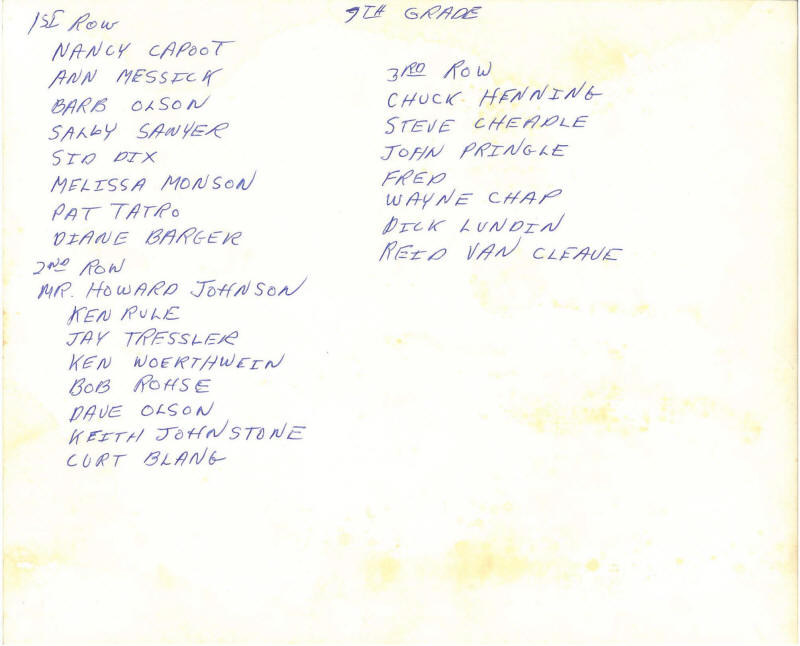 9TH GRADE
1ST ROW
NANCY CAPOOT
ANN MESSICK
BARB OLSON
SALLY SAWYER
SID DIX
MELISSA MONSON
PAT TATRO
DIANE BARGER
2ND ROW
MR. HOWARD JOHNSON
KEN RULE
JAY TRESSLER
KEN WOERTHWEIN
BOB ROHSE
DAVE OLSON
KEITH JOHNSTONE
CURT BLANG
3RD ROW
CHUCK HENNING
STEVE CHEADLE
JOHN PRINGLE
FRED
WAYNE CHAP
DICK LUNDIN
REID VAN CLEAVE